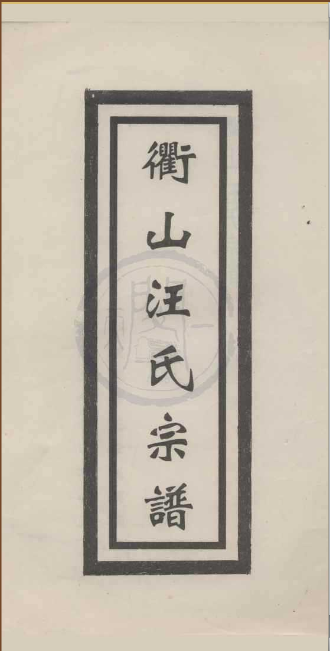 衢山汪氏宗譜